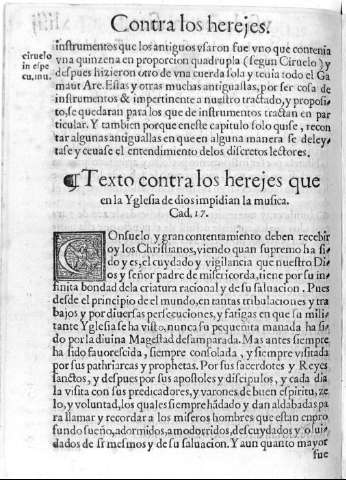 Contra los herejes.
instrumentos que los antiguos vsaron fue vno que contenia
ciruelo
in espe
cu.mu.
vna quinzena en proporcion quadrupla (segun Ciruelo) y
despues hizieron otro de vna cuerda sola y tenia todo el Ga
maut Are. Estas y otras muchas antiguallas, por ser cosa de
instrumentos & impertinente a nuestro tractado, y proposi-
to, se quedaran para los que de instrumentos tractan en par
ticular. Y tambien porque en este capitulo solo quise, recon
tar algunas antiguallas en que en alguna manera se deley-
tase y ceuase el entendimiento delos discretos lectores.
¶Texto contra los herejes que
en la Yglesia de dios impidian la musica.
Cad. 17.
COnsuelo y gran contentamiento deben recebir
oy los Christianos, viendo quan supremo ha si-
do y es, el cuydado y vigilancia que nuestro Di-
os y señor padre de misericorda, tiene por su in-
finita bondad dela criatura racional y de su saluacion. Pues
desde el principio de el mundo, en tantas tribulaciones y tra
bajos y por diuersas persecuciones, y fatigas en que su mili-
tante Yglesia se ha visto, nunca su pequeñita manada ha si-
do por la diuina Magestad desamparada. Mas antes siempre
ha sido fauorescida, siempre consolada, y siempre visitada
por sus pathriarcas y prophetas. Por sus sacerdotes y Reyes
sanctos, y despues por sus apostoles y discipulos, y cada dia
la visita con sus predicadores, y varones de buen espiritu, ze
lo, y voluntad, los quales siempre hãdado y dan aldabadas pa
ra llamar y recordar a los miseros hombres que estan enpro
fundo sueño, adormidos, amodorridos, descuydados y olui-
dados de si mesmos y de su saluacion. Y aun quanto mayor
fue